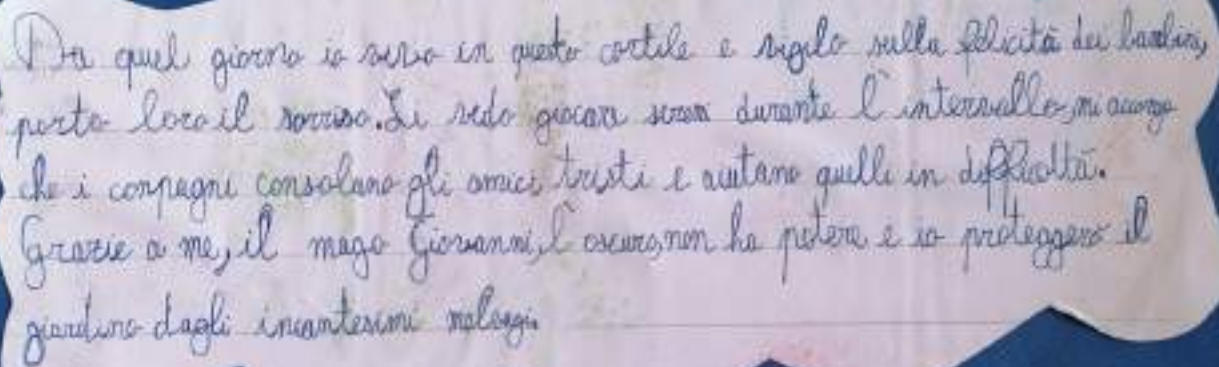 Da quel giorno io vivo in questo cortile e vigilo sulla felicità dei bambini,
porto loro il sorriso. Li vedo giocare sereni durante l'intervallo, mi accorgo
che i compagni consolano gli amici tristi e aiutano quelli in difficoltà.
Grazie a me, il mago Giovanni, l'oscuro, non ha potere e io proteggerò il
giardino dagli incantesimi malvagi.